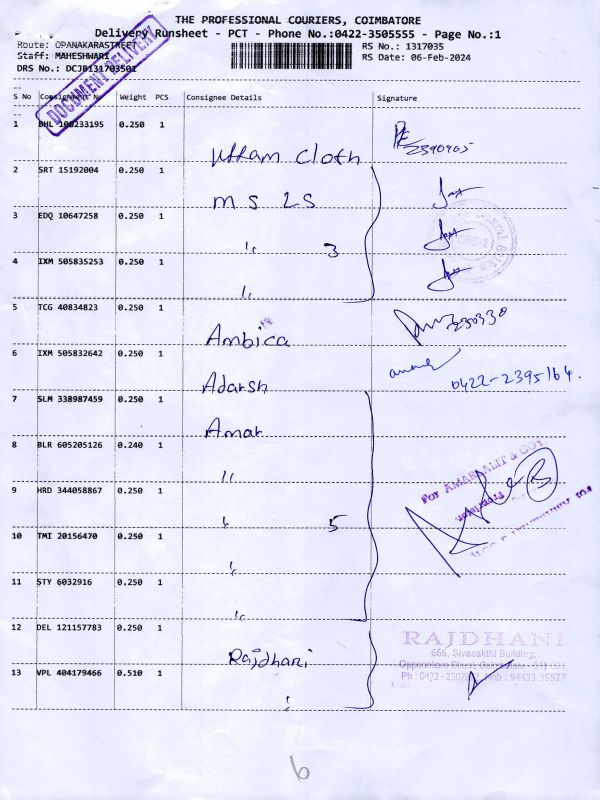 THE PROFESSIONAL COURIERS, COIMBATORE
Delivery Runsheet - PCT - Phone No.:0422-3505555 - Page No.:1
Route: OPANAKARASTREET
RS No.: 1317035
Staff: MAHESHWARI
RS Date: 06-Feb-2024
DRS No.: DCJB131703501
DOCUMENT DELIVERY
S No Consignment No Weight PCS Consignee Details Signature
1 BHL 100233195 0.250 1
Uttam Cloth 2390905
2 SRT 15192004 0.250 1
M S 2S
3 EDQ 10647258 0.250 1
" 3
4 IXM 505835253 0.250 1
"
5 TCG 40834823 0.250 1
Ambica 230330
6 IXM 505832642 0.250 1
Adarsh 0422-2395164.
7 SLM 338987459 0.250 1
Amar
8 BLR 605205126 0.240 1
"
9 HRD 344058867 0.250 1
" 5
For AMAR LALIT & COY.
10 TMI 20156470 0.250 1
"
11 STY 6032916 0.250 1
"
12 DEL 121157783 0.250 1
Rajdhani
RAJDHANI
666, Sivasakthi Building,
13 VPL 404179466 0.510 1
"
6